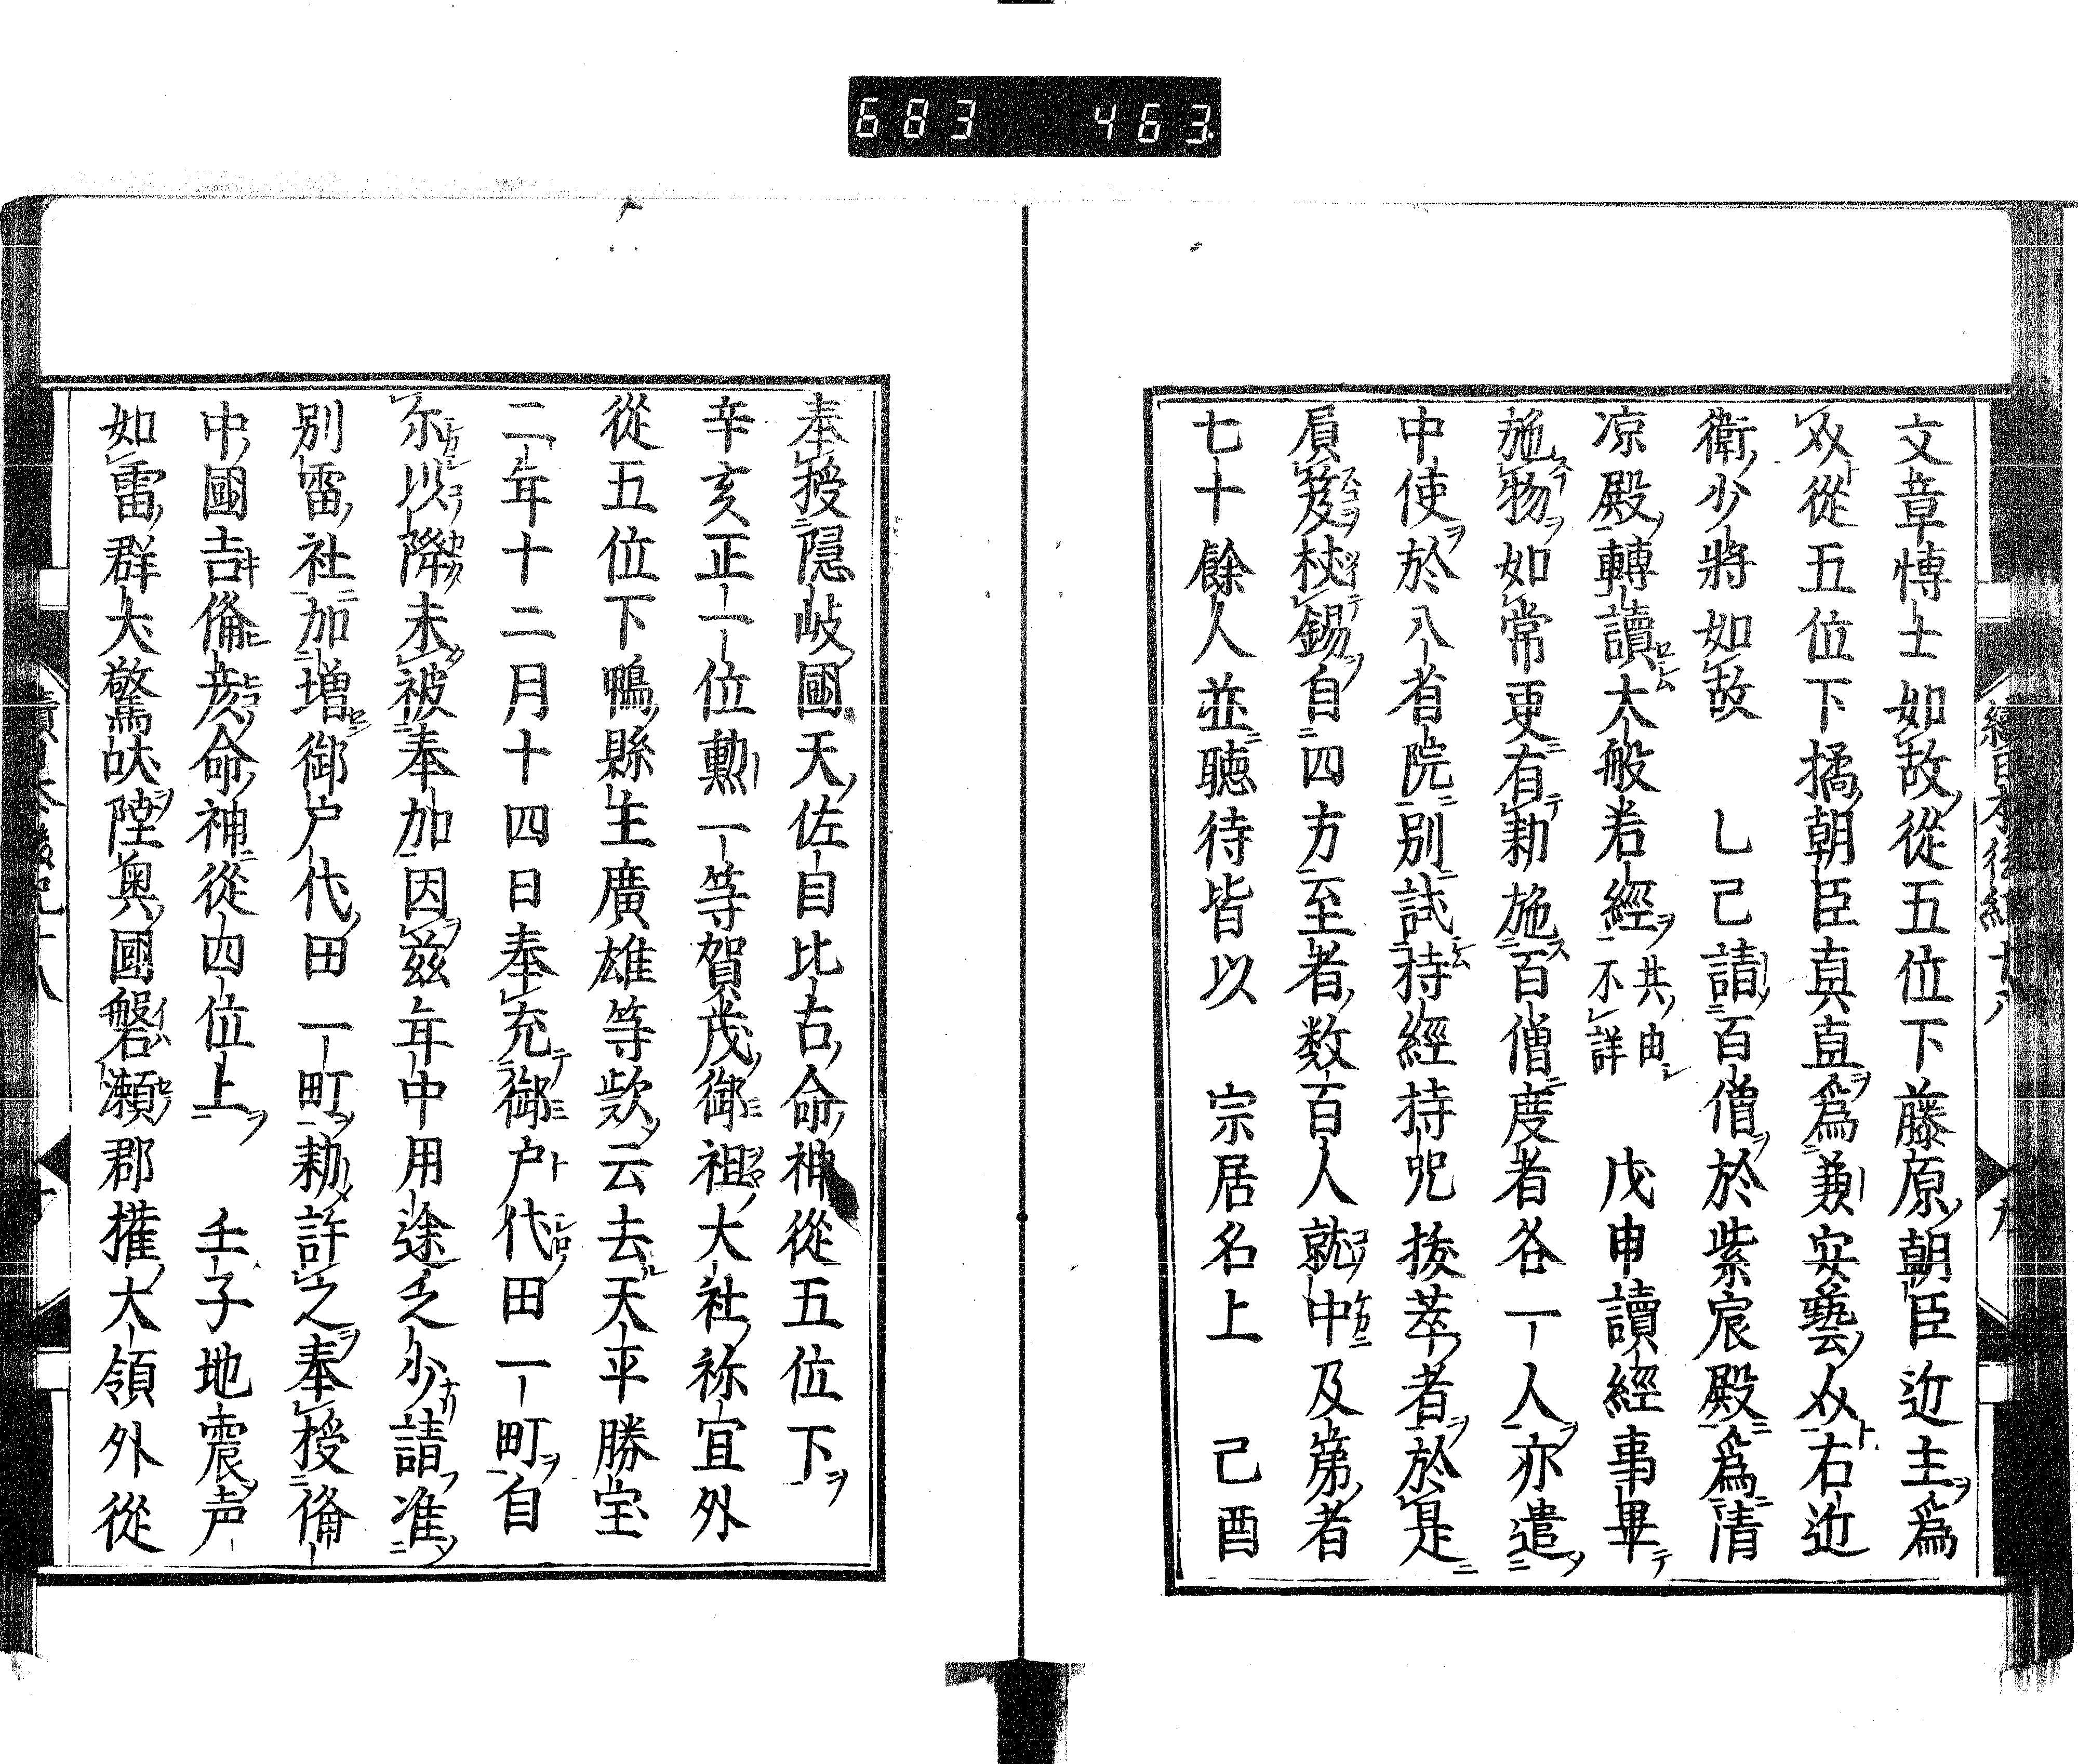 683 463
文章博士如故從五位下藤原朝臣近主爲
从從五位下橘朝臣真直爲兼安藝从右近
衛少將如故 乙己請百僧於紫宸殿爲清
凉殿轉讀大般若經共由不詳 戊申讀經事畢
施物如常更有勅施百僧度者各一人亦遣
中使於八省院別試持經持咒拔萃者於是
屓笈杖錫自四方至者数百人就中及第者
七十餘人並聴待皆以 宗居名上 己酉
奉授隠岐國天佐自比古命神從五位下
辛亥正一位勲一等賀茂御祖大社祢宜外
從五位下鴨縣主廣雄等欵云去天平勝宝
二年十二月十四日奉充御戸代田一町自
尓以降未被奉加因茲年中用途乏少請准
別雷社加増御戸代田一町勅許之奉授備
中國吉備彦命神從四位上 壬子地震声
如雷群犬驚吠陸奥國磐瀬郡權大領外從